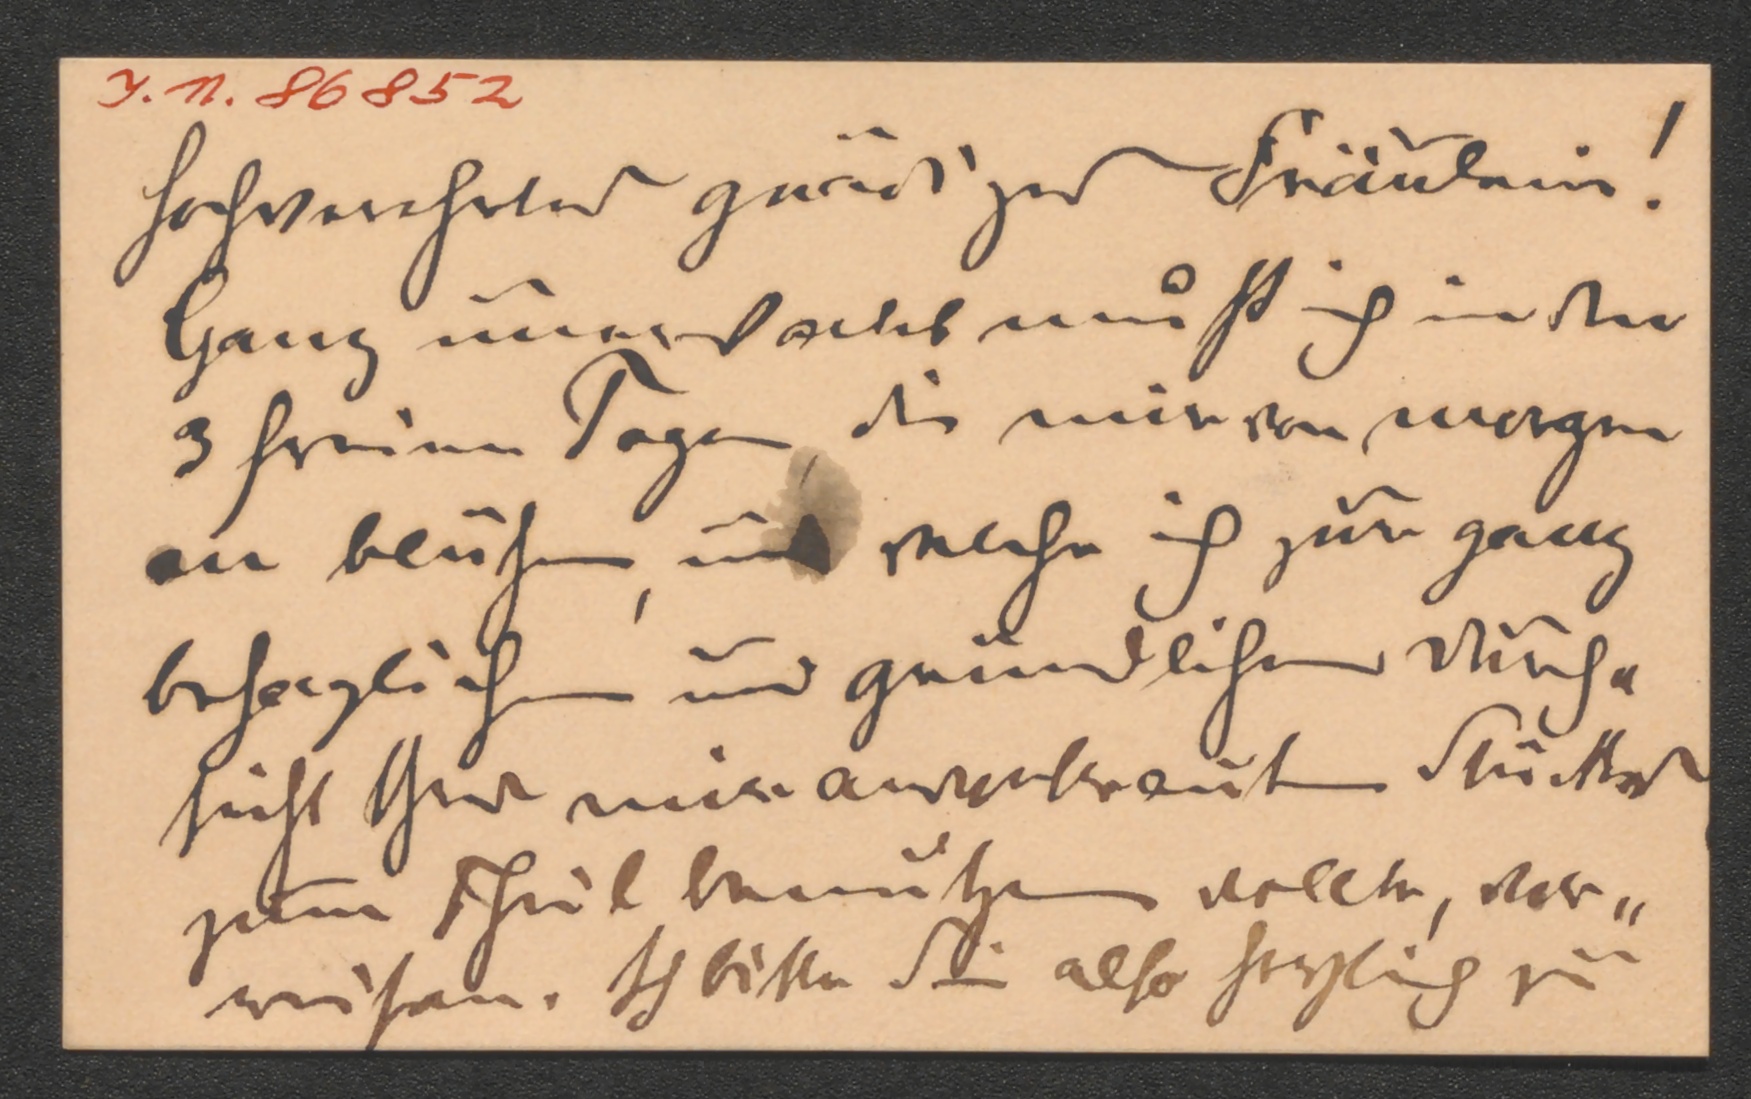 J. N. 86852
Hochverehrtes gnädiges Fräulein!
Ganz unerwartet muß ich in den
3 freien Tagen, die mir von morgen
an blühen, und welche ich zur ganz
behaglichen und gründlichen Durch„
sicht Ihres mir anvertrauten Stückes
zum Theil benützen wollte, ver„
reisen. Ich bitte Sie also herzlich zu